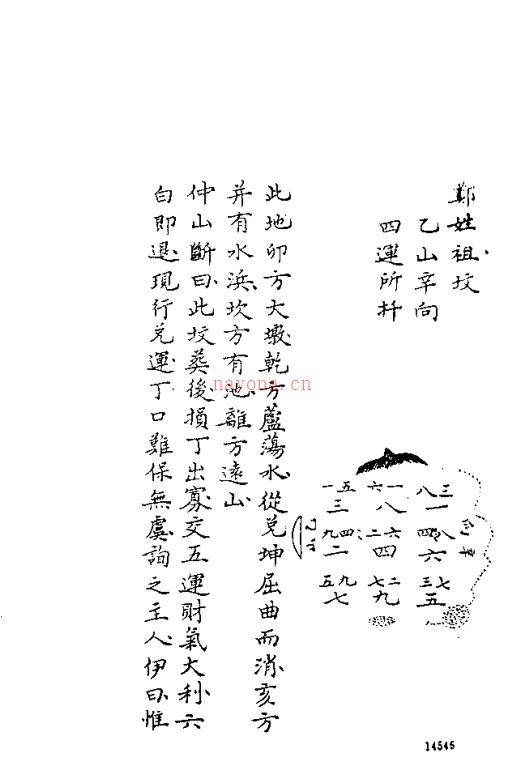 鄭姓祖坟
乙山辛向
四運所扦
一五 六一 八三
三 八 一
九四 二六 四八
二 四 六
五九 七二 三七
七 九 五
乙山
此地卯方大墩乾方蘆蕩水從兌坤屈曲而消亥方
并有水浜坎方有池離方遠山
仲山斷曰此坟葬後損丁出寡交五運財氣大利六
白即退現行兌運丁口難保無虞詢之主人伊曰惟
nayona.cn
14545